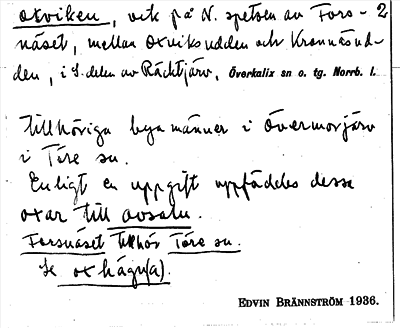 Oxviken, vik på N. spetsen av Fors- 2
näset, mellan Oxviksudden och Kronnäsud-
den, i S. delen av Räcktjärv, Överkalix sn o. tg. Norrb. l.
tillhöriga byamänner i Övermorjärv
i Töre sn.
Enligt en uppgift uppföddes dessa
oxar till avsalu.
Forsnäset tillhör Töre sn.
Se oxhägn(a).
EDVIN BRÄNNSTRÖM 1936.